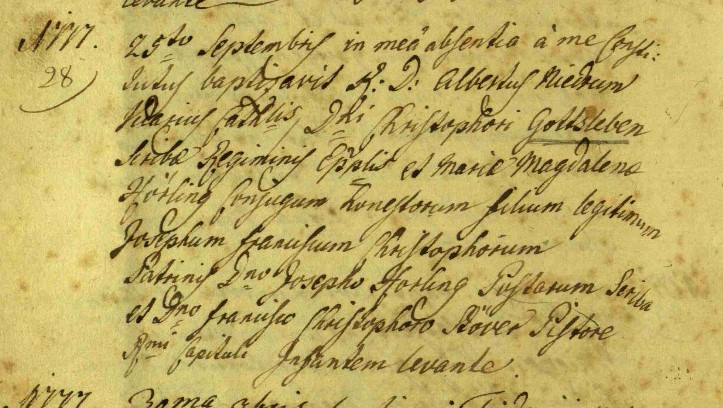 levante
1777. 25to Septembris in meâ absentia à me Consti:
28 tutus baptizavit R: D: Albertus Niedrum
Vicarius Cathlis Dni Christophori Gottsleben
Scribæ Regiminis Epplis et Mariæ Magdalenæ
Hörling Conjugum honestorum filium legitimum
Josephum Franciscum Christophorum
Patrinis Dno Josepho Hörling Postarum Scriba
et Dno Francisco Christophoro Röver Pistore
Rmi Capituli Infantem levante.
1777.